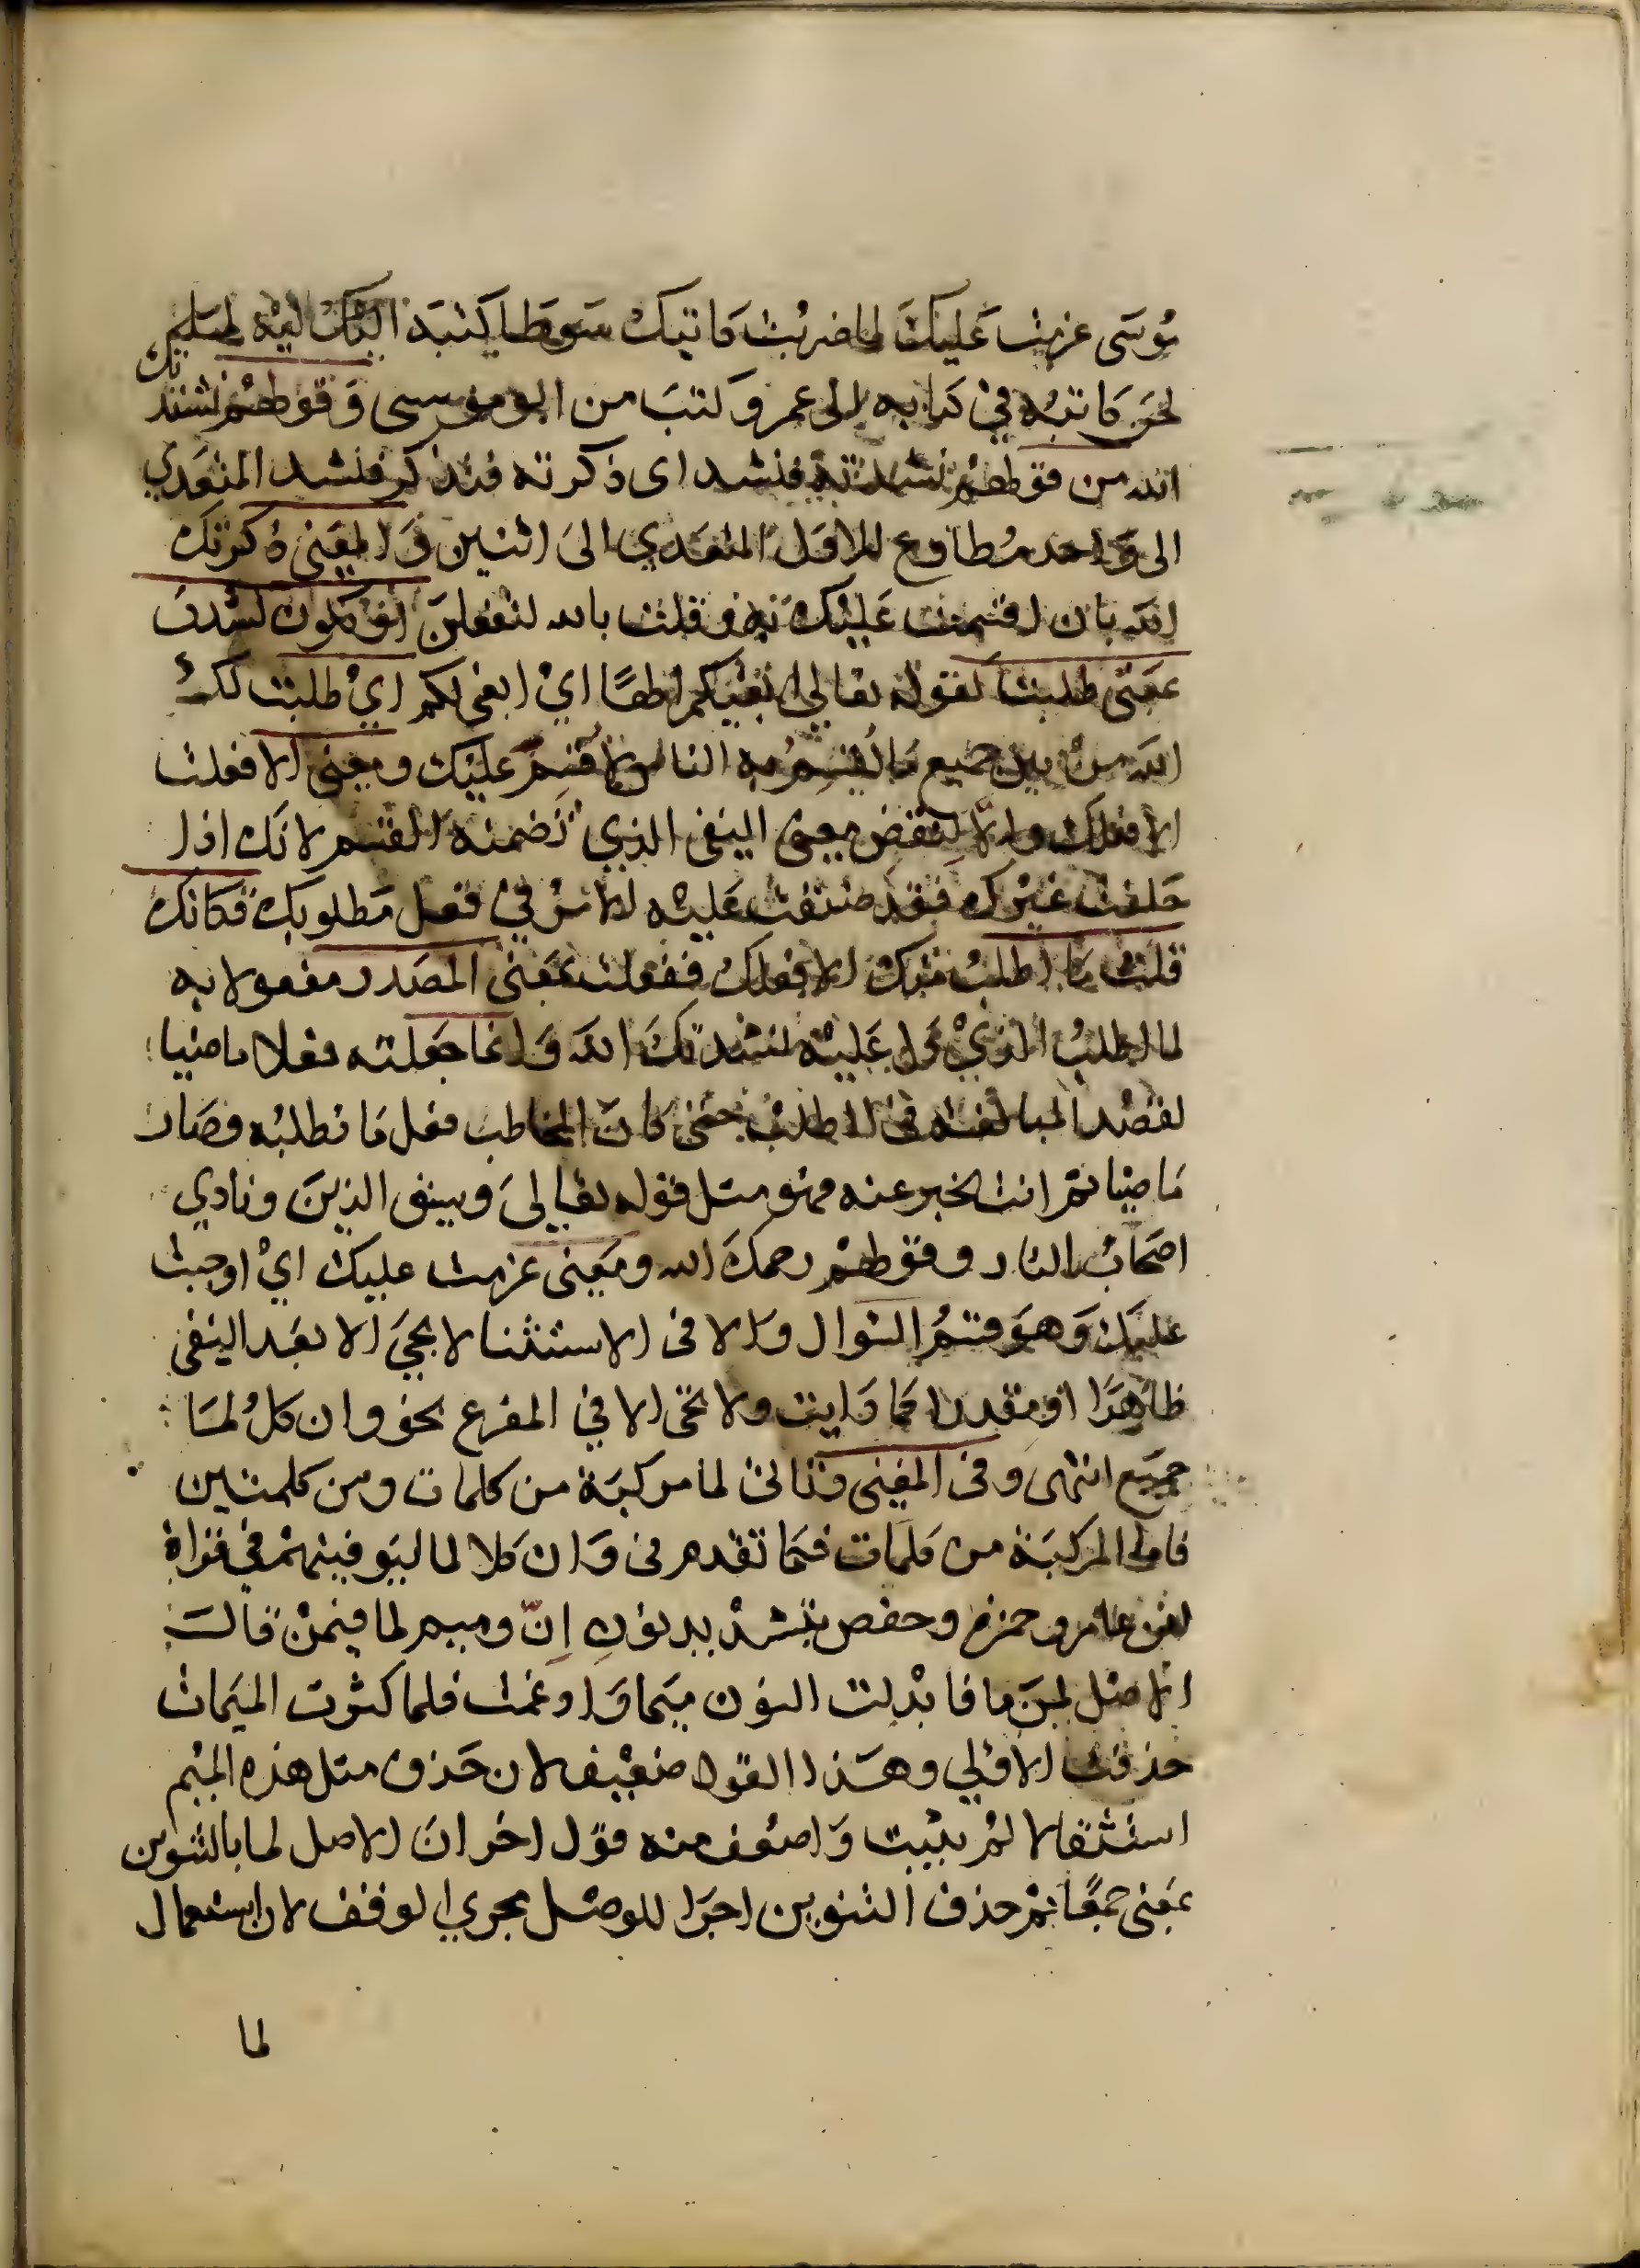 موسى عزمت عليك لما ضربت كاتبك سوطا كتبه اليك ليه لما
لحن كاتبه في كتابه الى عمر وكتب من ابو موسى وقولهم نشدتك
الله من قولهم نشدته فنشد اى ذكرته فتذكر فنشد المتعدي
الى واحد مطاوع للاول المتعدي الى اثنين والمعنى ذكرتك
الله بان اقسمت عليك به وقلت بالله لتفعلن او يكون نشدت
بمعنى طلبت كقوله تعالى ابغيكم الها اي ابغى لكم اي طلبت لك
الله من بين جميع ما يقسم به الناس لاقسم عليك ومعنى الا فعلت
الا فعلك والا لنقض معنى النفى الذي تضمنه القسم لانك اذا
حلفت غيرك فقد ضيقت عليه الامر في فعل مطلوبك فكانك
قلت ما اطلب منك الا فعلك ففعلت بمعنى المصدر مفعولا به
لما اطلب الذي دل عليه نشدتك الله وانما جعلته فعلا ماضيا
لقصد المبالغة فى الطلب حتى كان المخاطب فعل ما تطلبه وصار
ماضيا ثم انت تخبر عنه فهو مثل قوله تعالى وسيق الذين ونادي
اصحاب النار وقولهم رحمك الله ومعنى عزمت عليك اي اوجبت
عليك وهو قسم السؤال والا فى الاستثنا لا يجئ الا بعد النفى
ظاهرا او مقدرا كما رايت ولا تجئ الا في المفرغ نحو وان كل لما
جميع انتهى وفى المغنى وتاتى لما مركبة من كلمات ومن كلمتين
فاما المركبة من كلمات فكما تقدم فى وان كلا لما ليوفينهم في قراة
ابن عامر وحمزة وحفص بتشديد نون إنّ وميم لما فيمن قال
الاصل لمن ما فابدلت النون ميما وادغمت فلما كثرت الميمات
حذفت الاولى وهذا القول ضعيف لان حذف مثل هذه الميم
استثقالا لم يثبت واضعف منه قول اخر ان الاصل لما بالتنوين
بمعنى جمعا ثم حذف التنوين اجرا للوصل مجري الوقف لان استعمال
لما